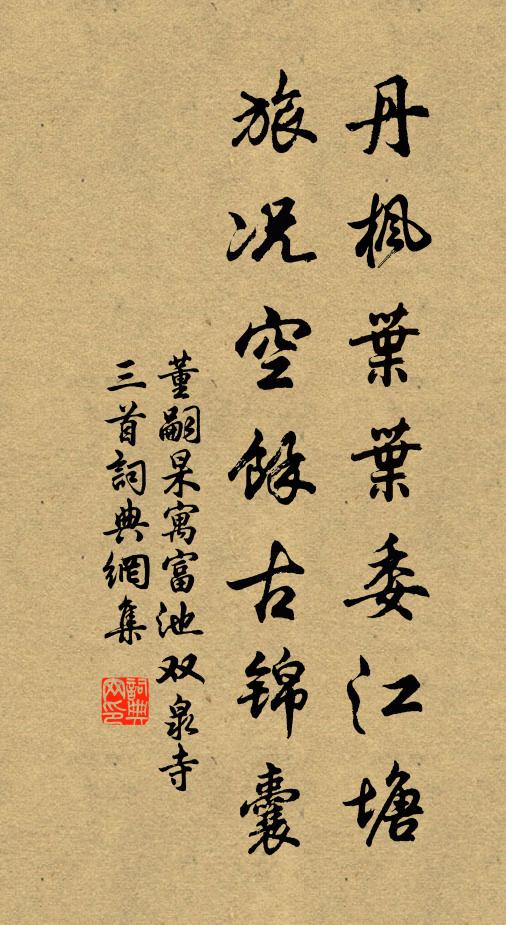 丹楓葉葉委江塘
旅况空餘古錦囊
董嗣杲寓富池双泉寺
三首詞典網集
詞典网印